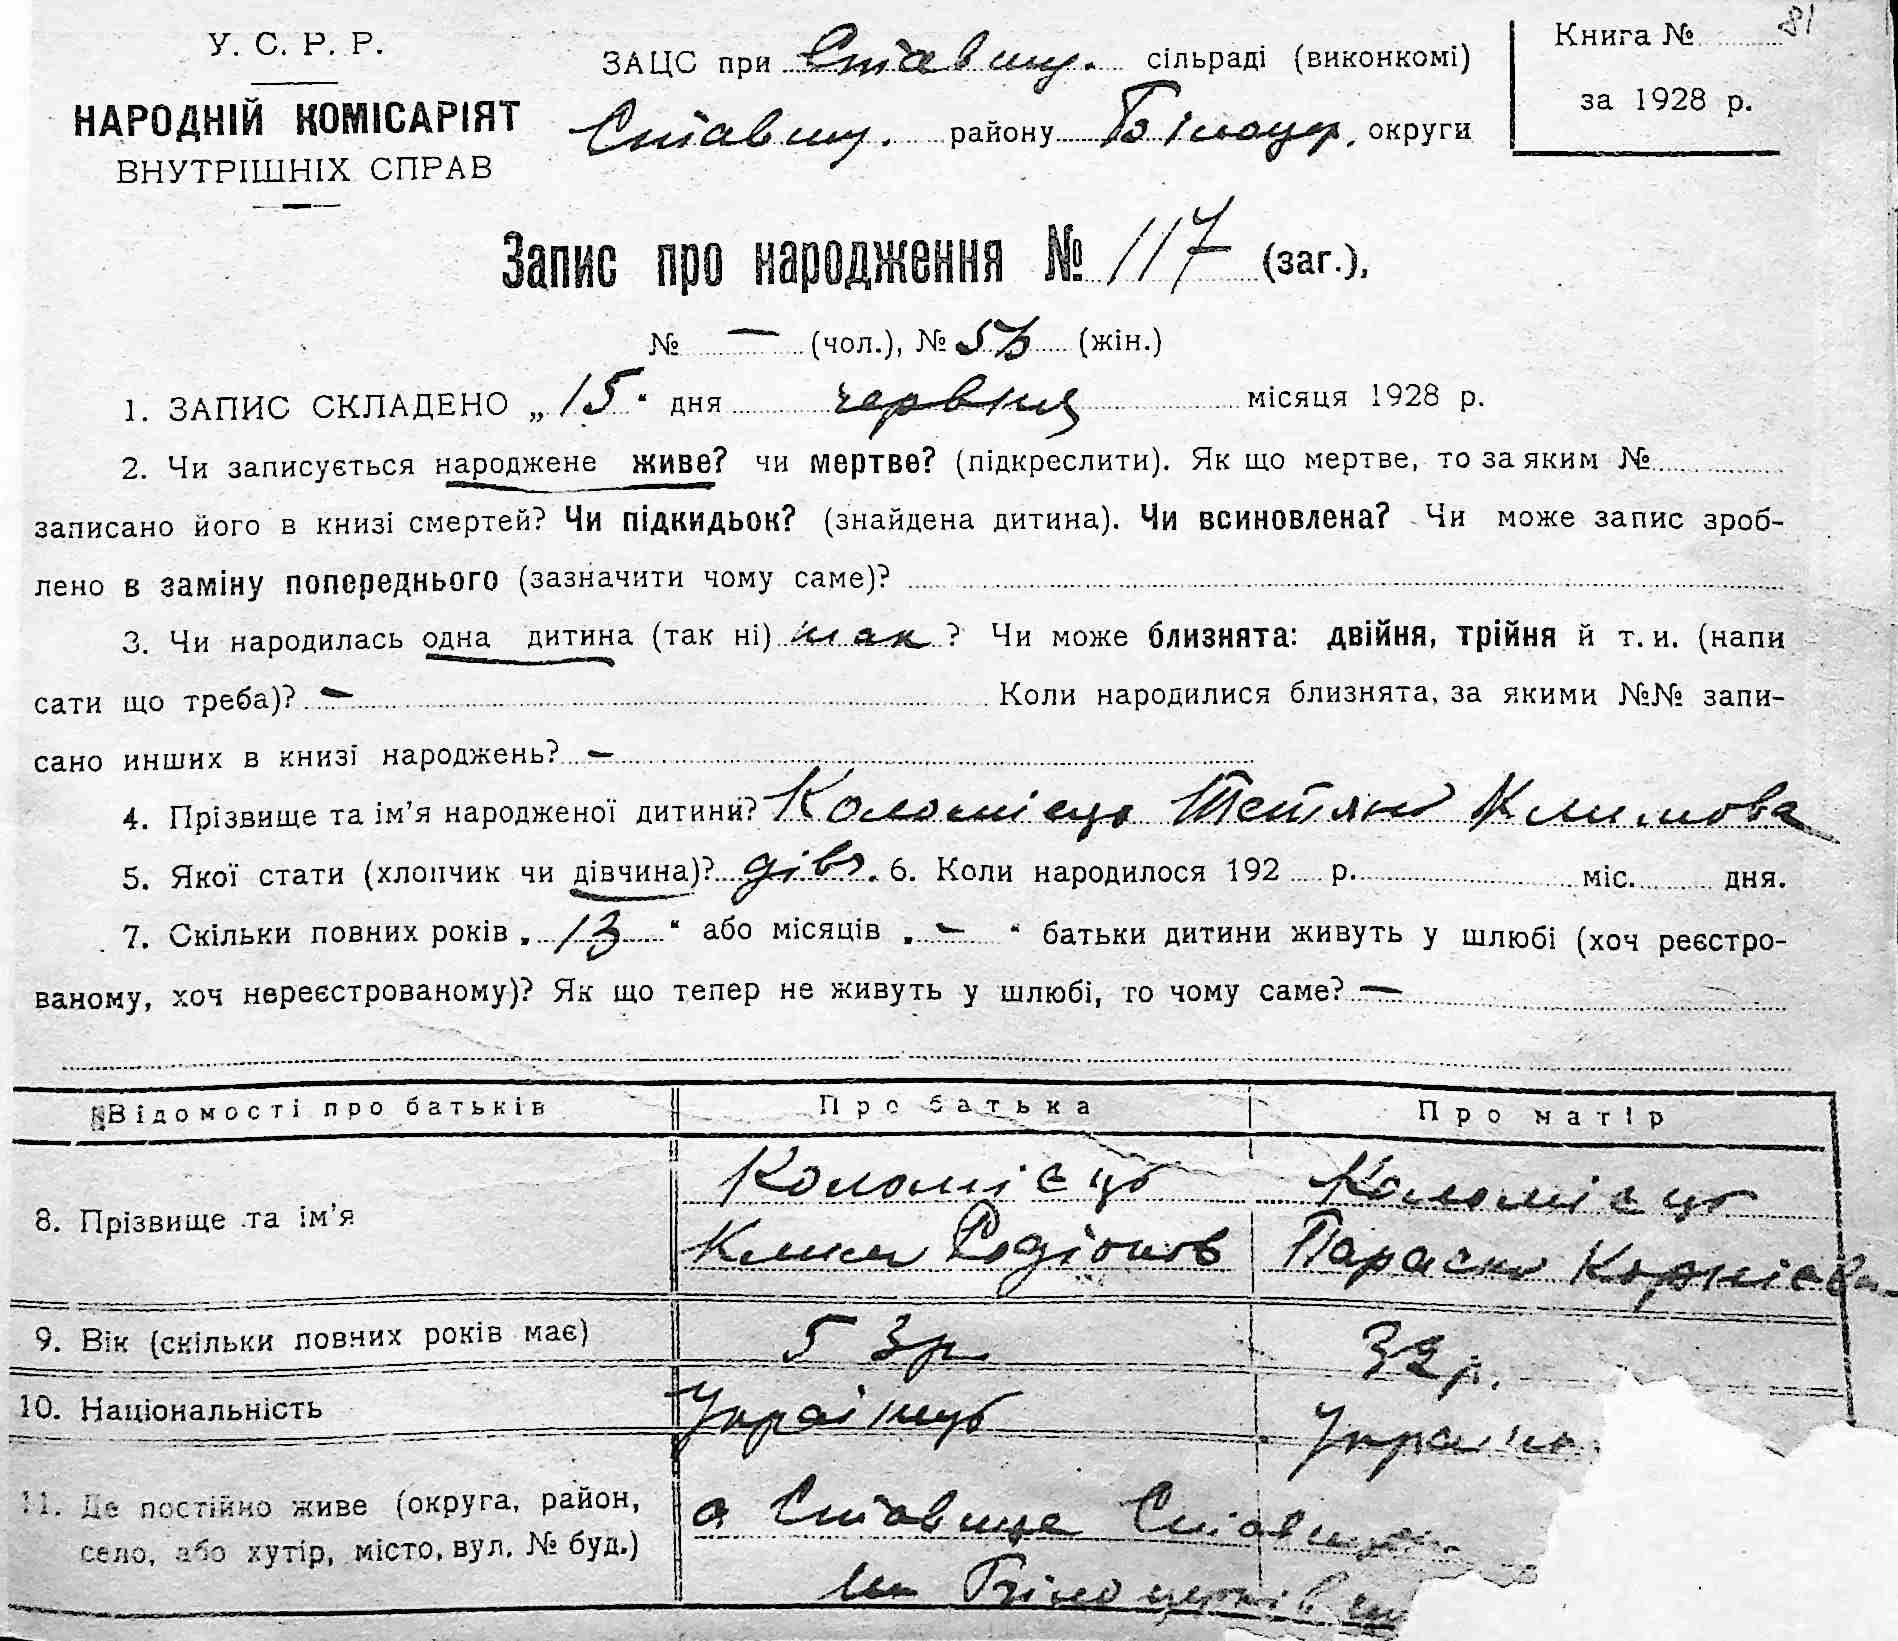 У. С. Р. Р.
НАРОДНІЙ КОМІСАРІЯТ
ВНУТРІШНІХ СПРАВ
ЗАЦС при Ставищ. сільраді (виконкомі)
Ставищ. району Білоцер. округи
Книга № 81
за 1928 р.
Запис про народження № 117 (заг.),
№ — (чол.), № (жін.)
1. ЗАПИС СКЛАДЕНО „15“ дня червня місяця 1928 р.
2. Чи записується народжене живе? чи мертве? (підкреслити). Як що мертве, то за яким №
записано його в книзі смертей? Чи підкидьок? (знайдена дитина). Чи всиновлена? Чи може запис зроб-
лено в заміну попереднього (зазначити чому саме)?
3. Чи народилась одна дитина (так ні) так? Чи може близнята: двійня, трійня й т. и. (напи
сати що треба)? — Коли народилися близнята, за якими №№ запи-
сано инших в книзі народжень? —
4. Прізвище та ім'я народженої дитини? Коломієць Тетяна Климова
5. Якої стати (хлопчик чи дівчина)? дівч. 6. Коли народилося 192 р. міс. дня.
7. Скільки повних років „13“ або місяців „—“ батьки дитини живуть у шлюбі (хоч реєстро-
ваному, хоч нереєстрованому)? Як що тепер не живуть у шлюбі, то чому саме? —
Відомості про батьків Про батька Про матір
8. Прізвище та ім'я Коломієць Клим Родіонов Коломієць Параска Корнієва
9. Вік (скільки повних років має) 53 р. 32 р.
10. Національність Українць Україн
11. Де постійно живе (округа, район,
село, або хутір, місто, вул. № буд.) Ставище